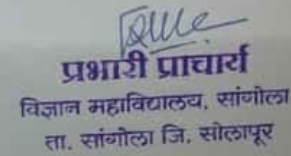 प्रभारी प्राचार्य
विज्ञान महाविद्यालय, सांगोला
ता. सांगोला जि. सोलापूर